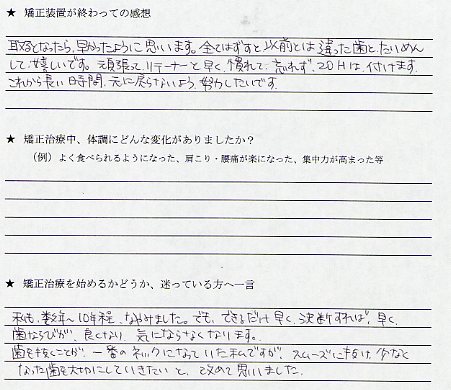 ★ 矯正装置が終わっての感想
取るとなったら、早かったように思います。全てはずすと以前とは違った歯と、たいめん
して嬉しいです。頑張ってリテーナーと早く慣れて、忘れず、20Hは、付けます。
これから長い時間、元に戻らないよう、努力したいです。
★ 矯正治療中、体調にどんな変化がありましたか？
（例）よく食べられるようになった、肩こり・腰痛が楽になった、集中力が高まった等
★ 矯正治療を始めるかどうか、迷っている方へ一言
私も、数年〜10年程、なやみました。でも、できるだけ早く、決断すれば、早く、
歯ならびが、良くなり、気にならなくなります。
歯を抜くことが、一番のネックになっていた私ですが、スムーズに抜け、少なく
なった歯を大切にしていきたいと、改めて思いました。